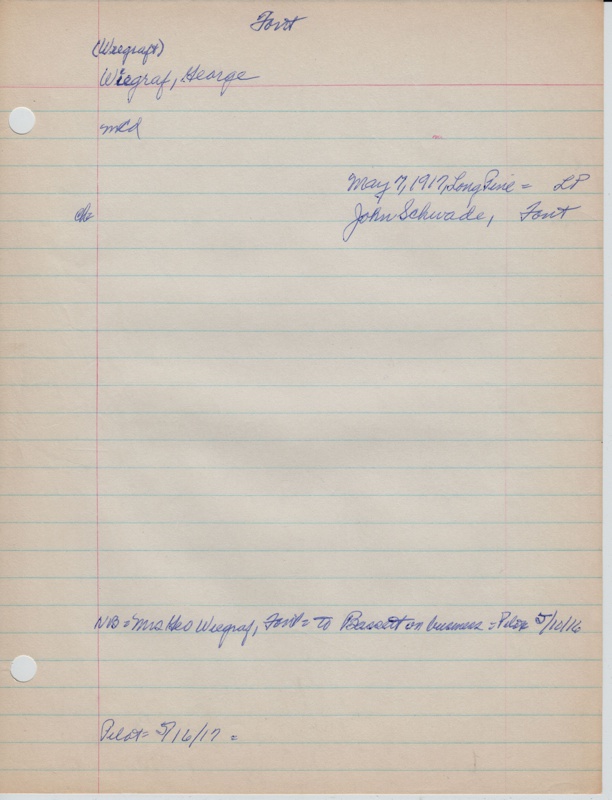 Font
(Wiegraft)
Wiegraf, George
md
May 7, 1917, Long Pine = LP
ch= John Schwade, Font
NB = Mrs Geo Wiegraf, Font = to Bassett on business = Pilot 5/10/16
Pilot = 5/16/17 =